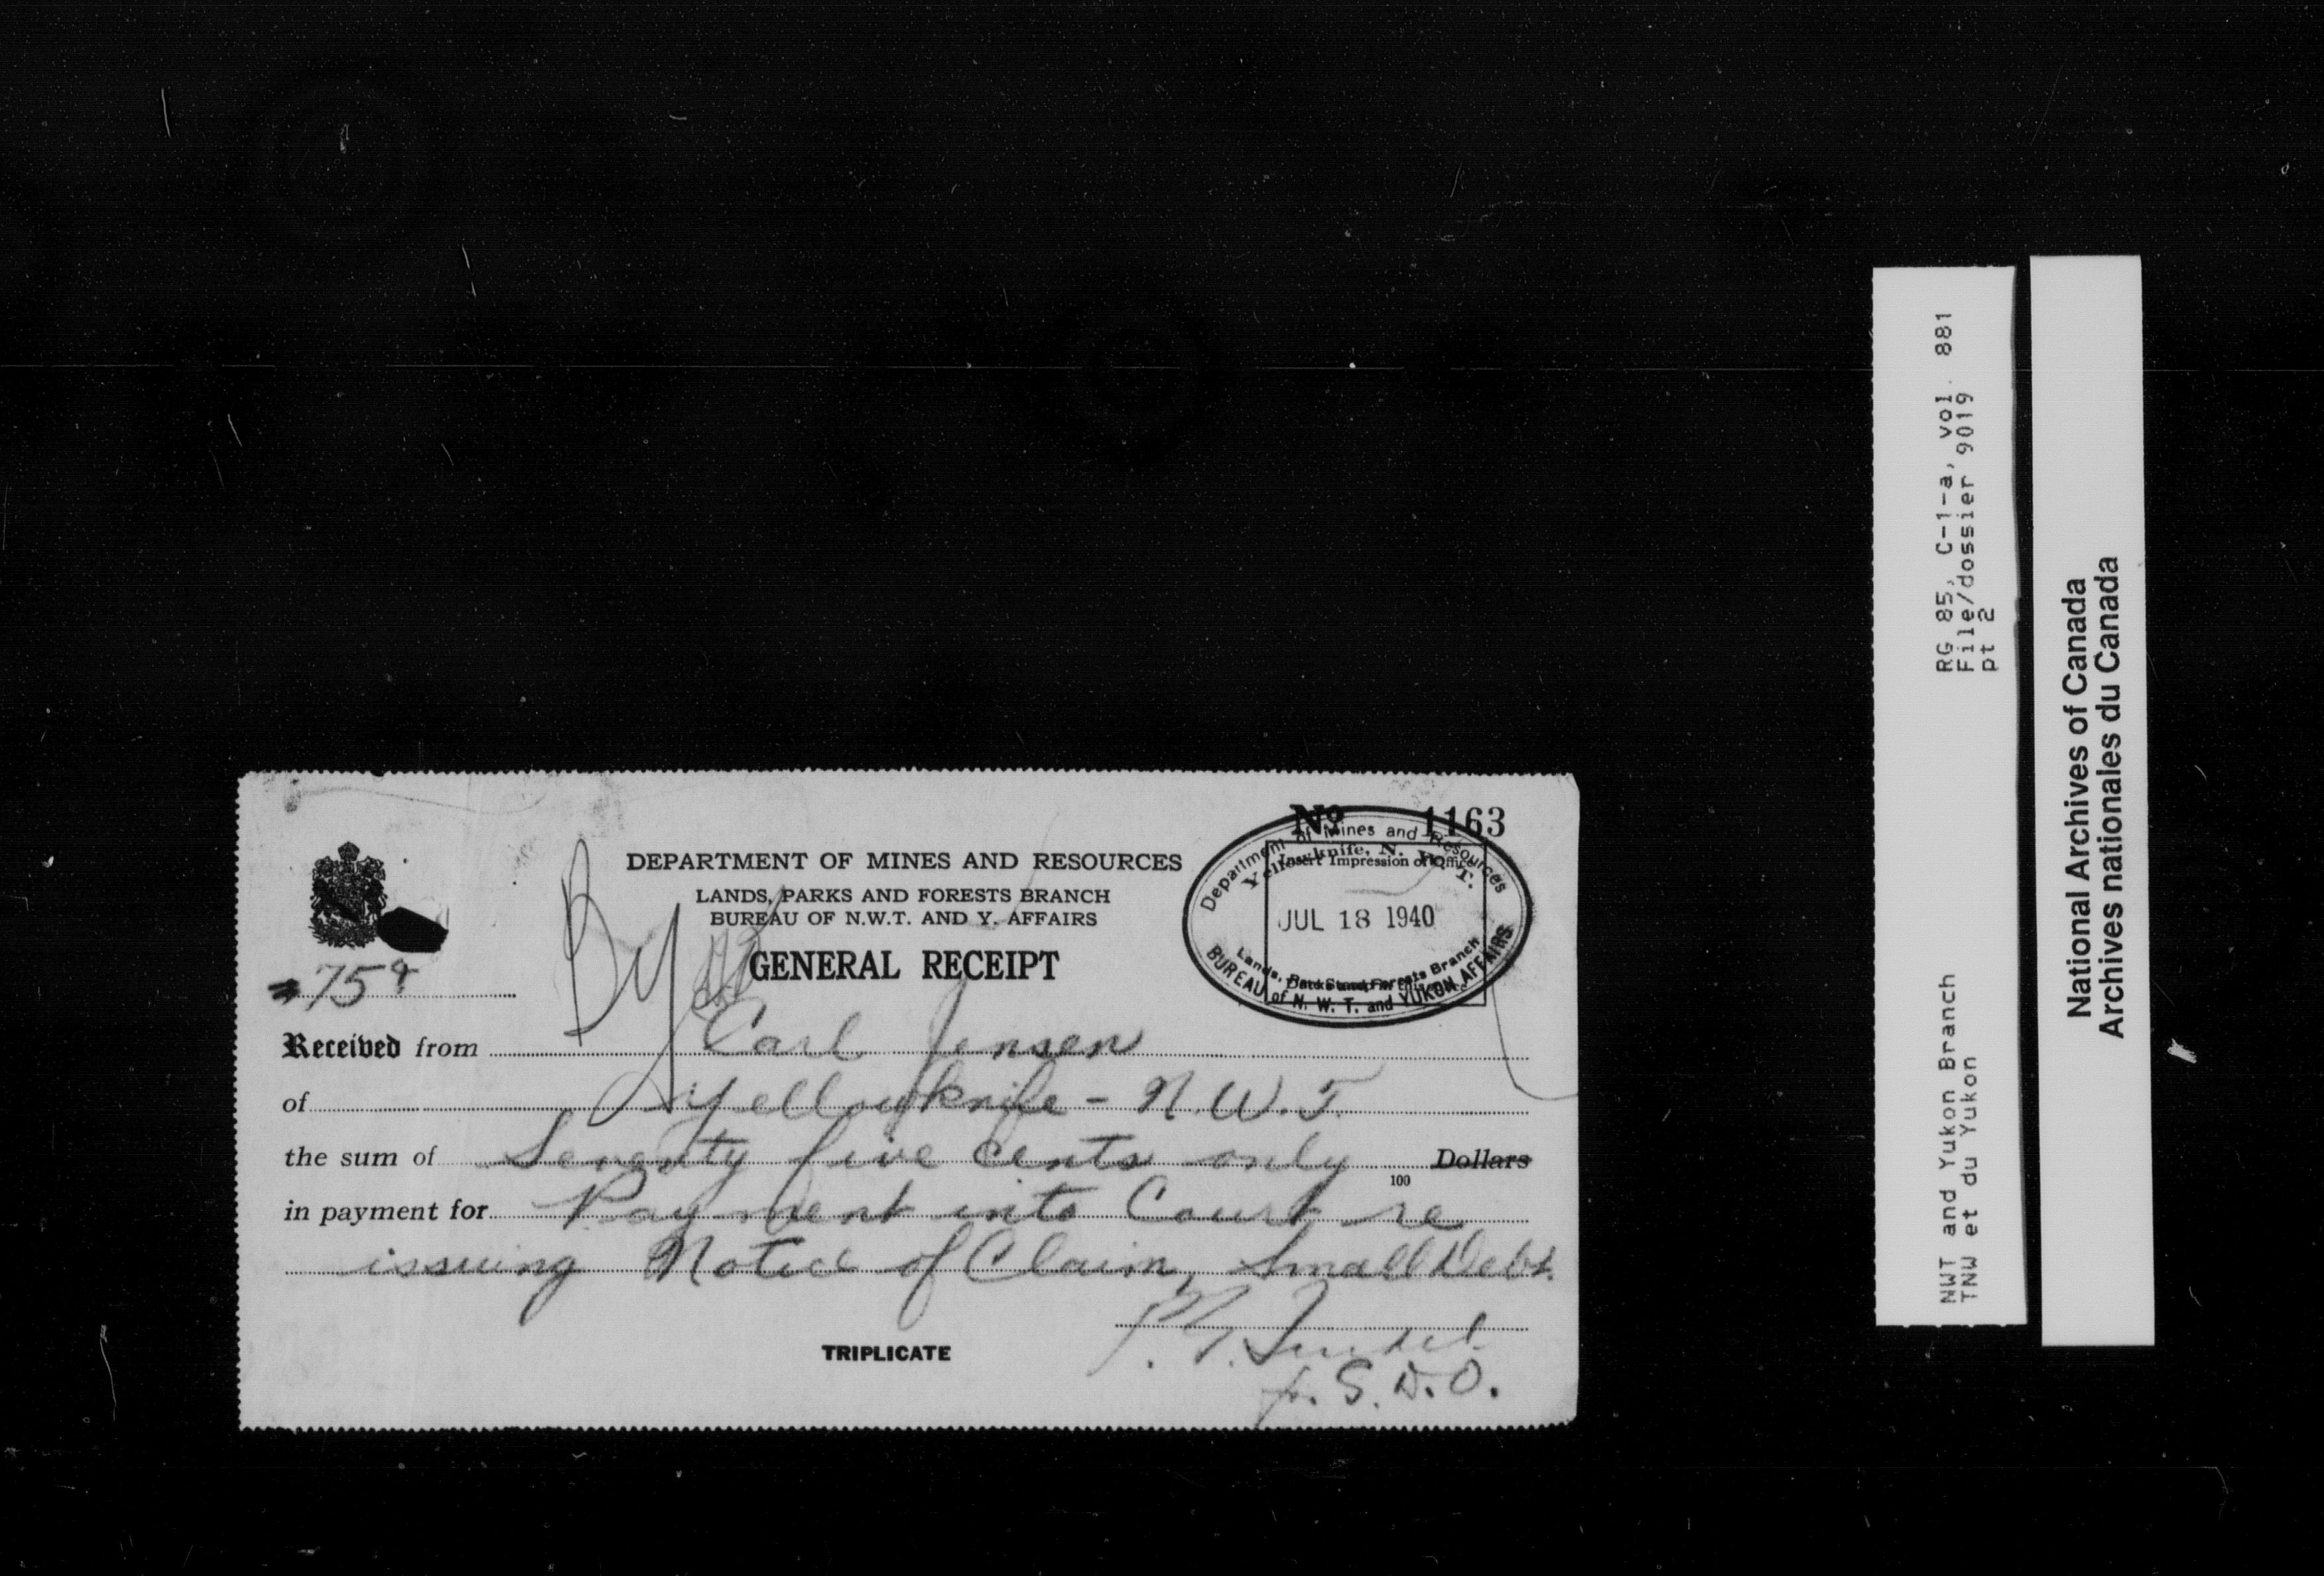 Nº 1163
DEPARTMENT OF MINES AND RESOURCES
LANDS, PARKS AND FORESTS BRANCH
BUREAU OF N.W.T. AND Y. AFFAIRS
GENERAL RECEIPT
Department of Mines and Resources
Yellowknife, N. W. T.
Insert Impression of Office
JUL 18 1940
Lands, Parks and Forests Branch
BUREAU of N. W. T. and YUKON AFFAIRS
75¢
Received from Carl Jensen
of Yellowknife - N.W.T.
the sum of Seventy five cents only 100 Dollars
in payment for Payment into Court re
issuing Notice of Claim, Small Debt.
TRIPLICATE
S.D.O.
RG 85, C-1-a, vol. 881
File/dossier 9019
pt 2
NWT and Yukon Branch
TNW et du Yukon
National Archives of Canada
Archives nationales du Canada